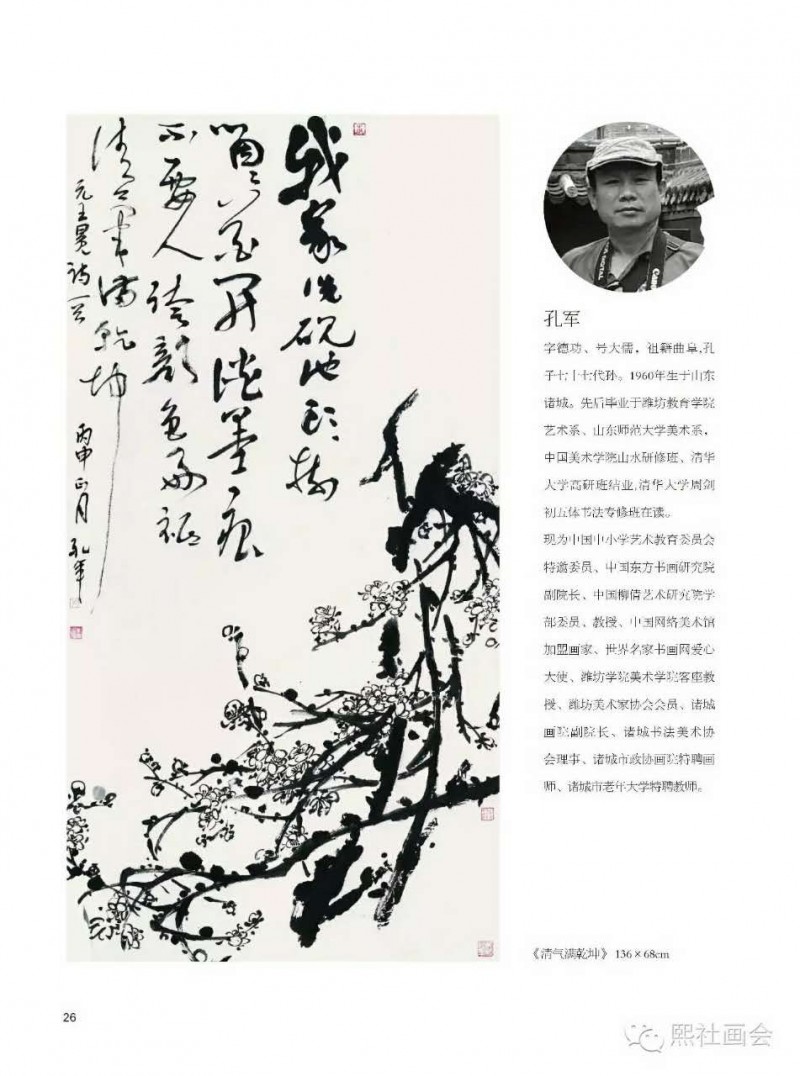 我家洗砚池头树
个个花开淡墨痕
不要人夸颜色好
清气
满乾坤
元王冕诗一首
丙申正月 孔军
孔军
字德功、号大儒，祖籍曲阜,孔
子七十七代孙。1960年生于山东
诸城。先后毕业于潍坊教育学院
艺术系、山东师范大学美术系，
中国美术学院山水研修班、清华
大学高研班结业,清华大学周剑
初五体书法专修班在读。
现为中国中小学艺术教育委员会
特邀委员、中国东方书画研究院
副院长、中国柳倩艺术研究院学
部委员、教授、中国网络美术馆
加盟画家、世界名家书画网爱心
大使、潍坊学院美术学院客座教
授、潍坊美术家协会会员、诸城
画院副院长、诸城书法美术协
会理事、诸城市政协画院特聘画
师、诸城市老年大学特聘教师。
《清气满乾坤》 136×68cm
26
熙社画会